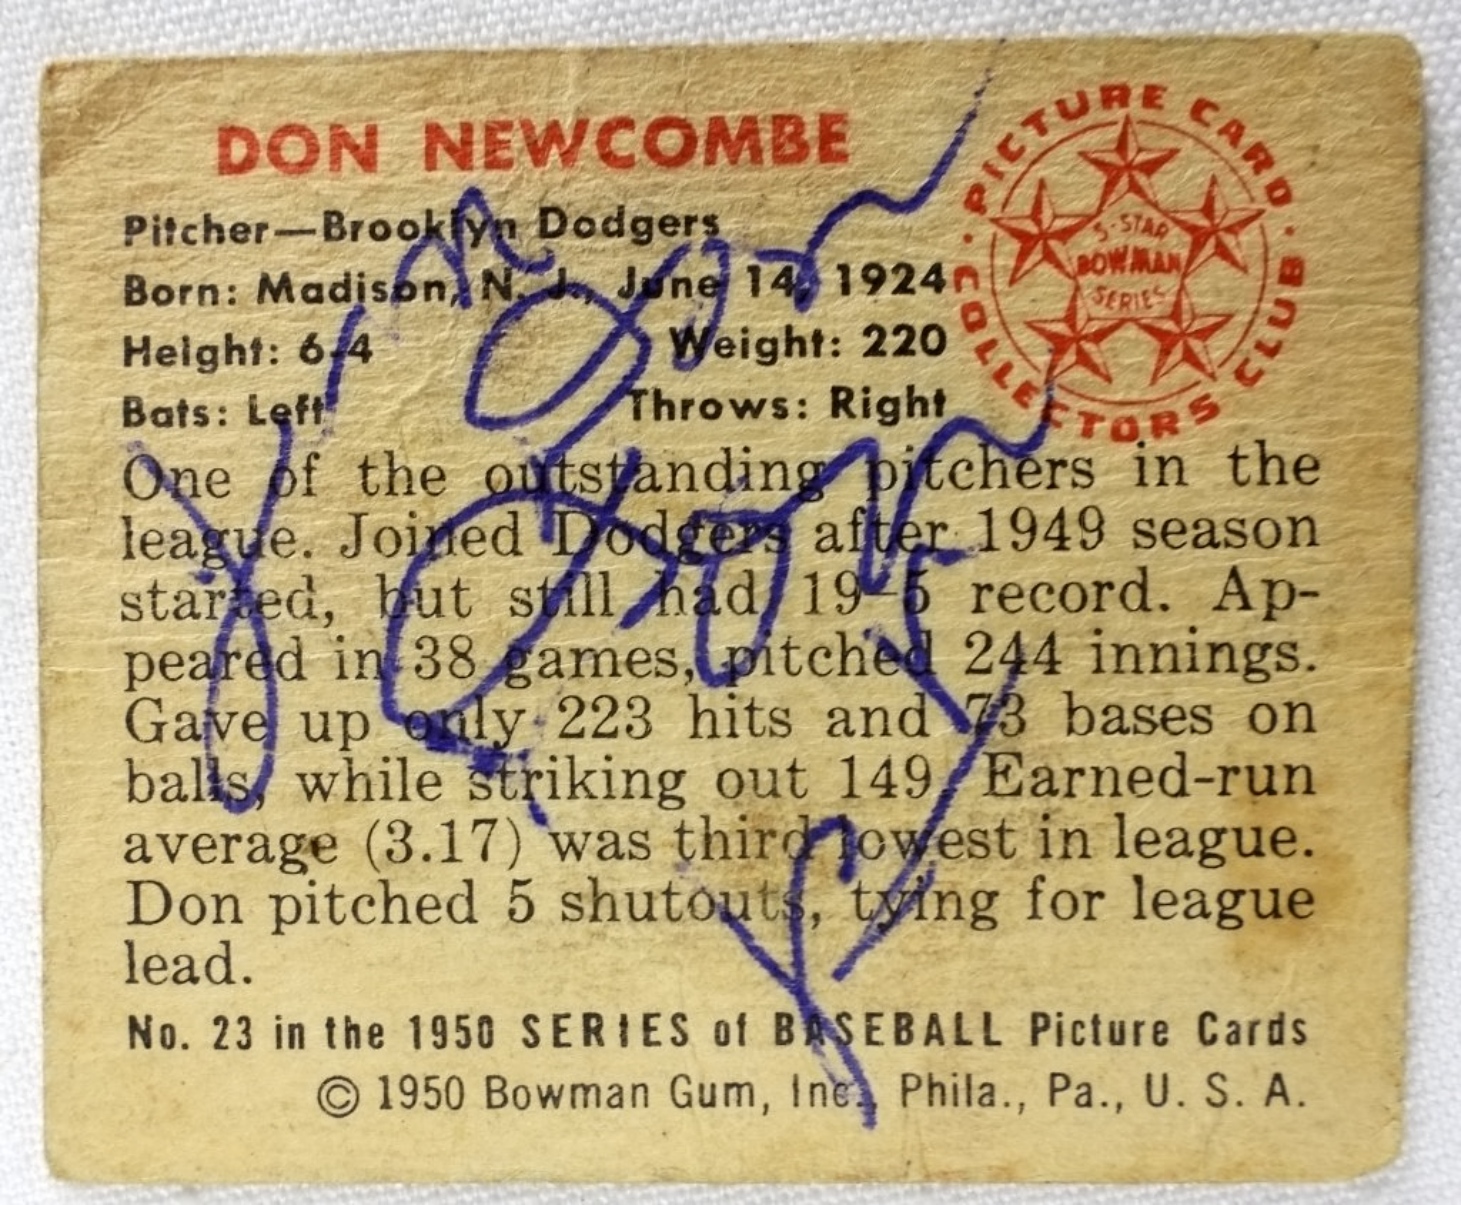 DON NEWCOMBE
Pitcher—Brooklyn Dodgers
Born: Madison, N. J., June 14, 1924
Height: 6-4 Weight: 220
Bats: Left Throws: Right
PICTURE CARD COLLECTORS CLUB
5-STAR
BOWMAN
SERIES
One of the outstanding pitchers in the
league. Joined Dodgers after 1949 season
started, but still had 19-5 record. Ap-
peared in 38 games, pitched 244 innings.
Gave up only 223 hits and 73 bases on
balls, while striking out 149. Earned-run
average (3.17) was third lowest in league.
Don pitched 5 shutouts, tying for league
lead.
No. 23 in the 1950 SERIES of BASEBALL Picture Cards
© 1950 Bowman Gum, Inc., Phila., Pa., U. S. A.